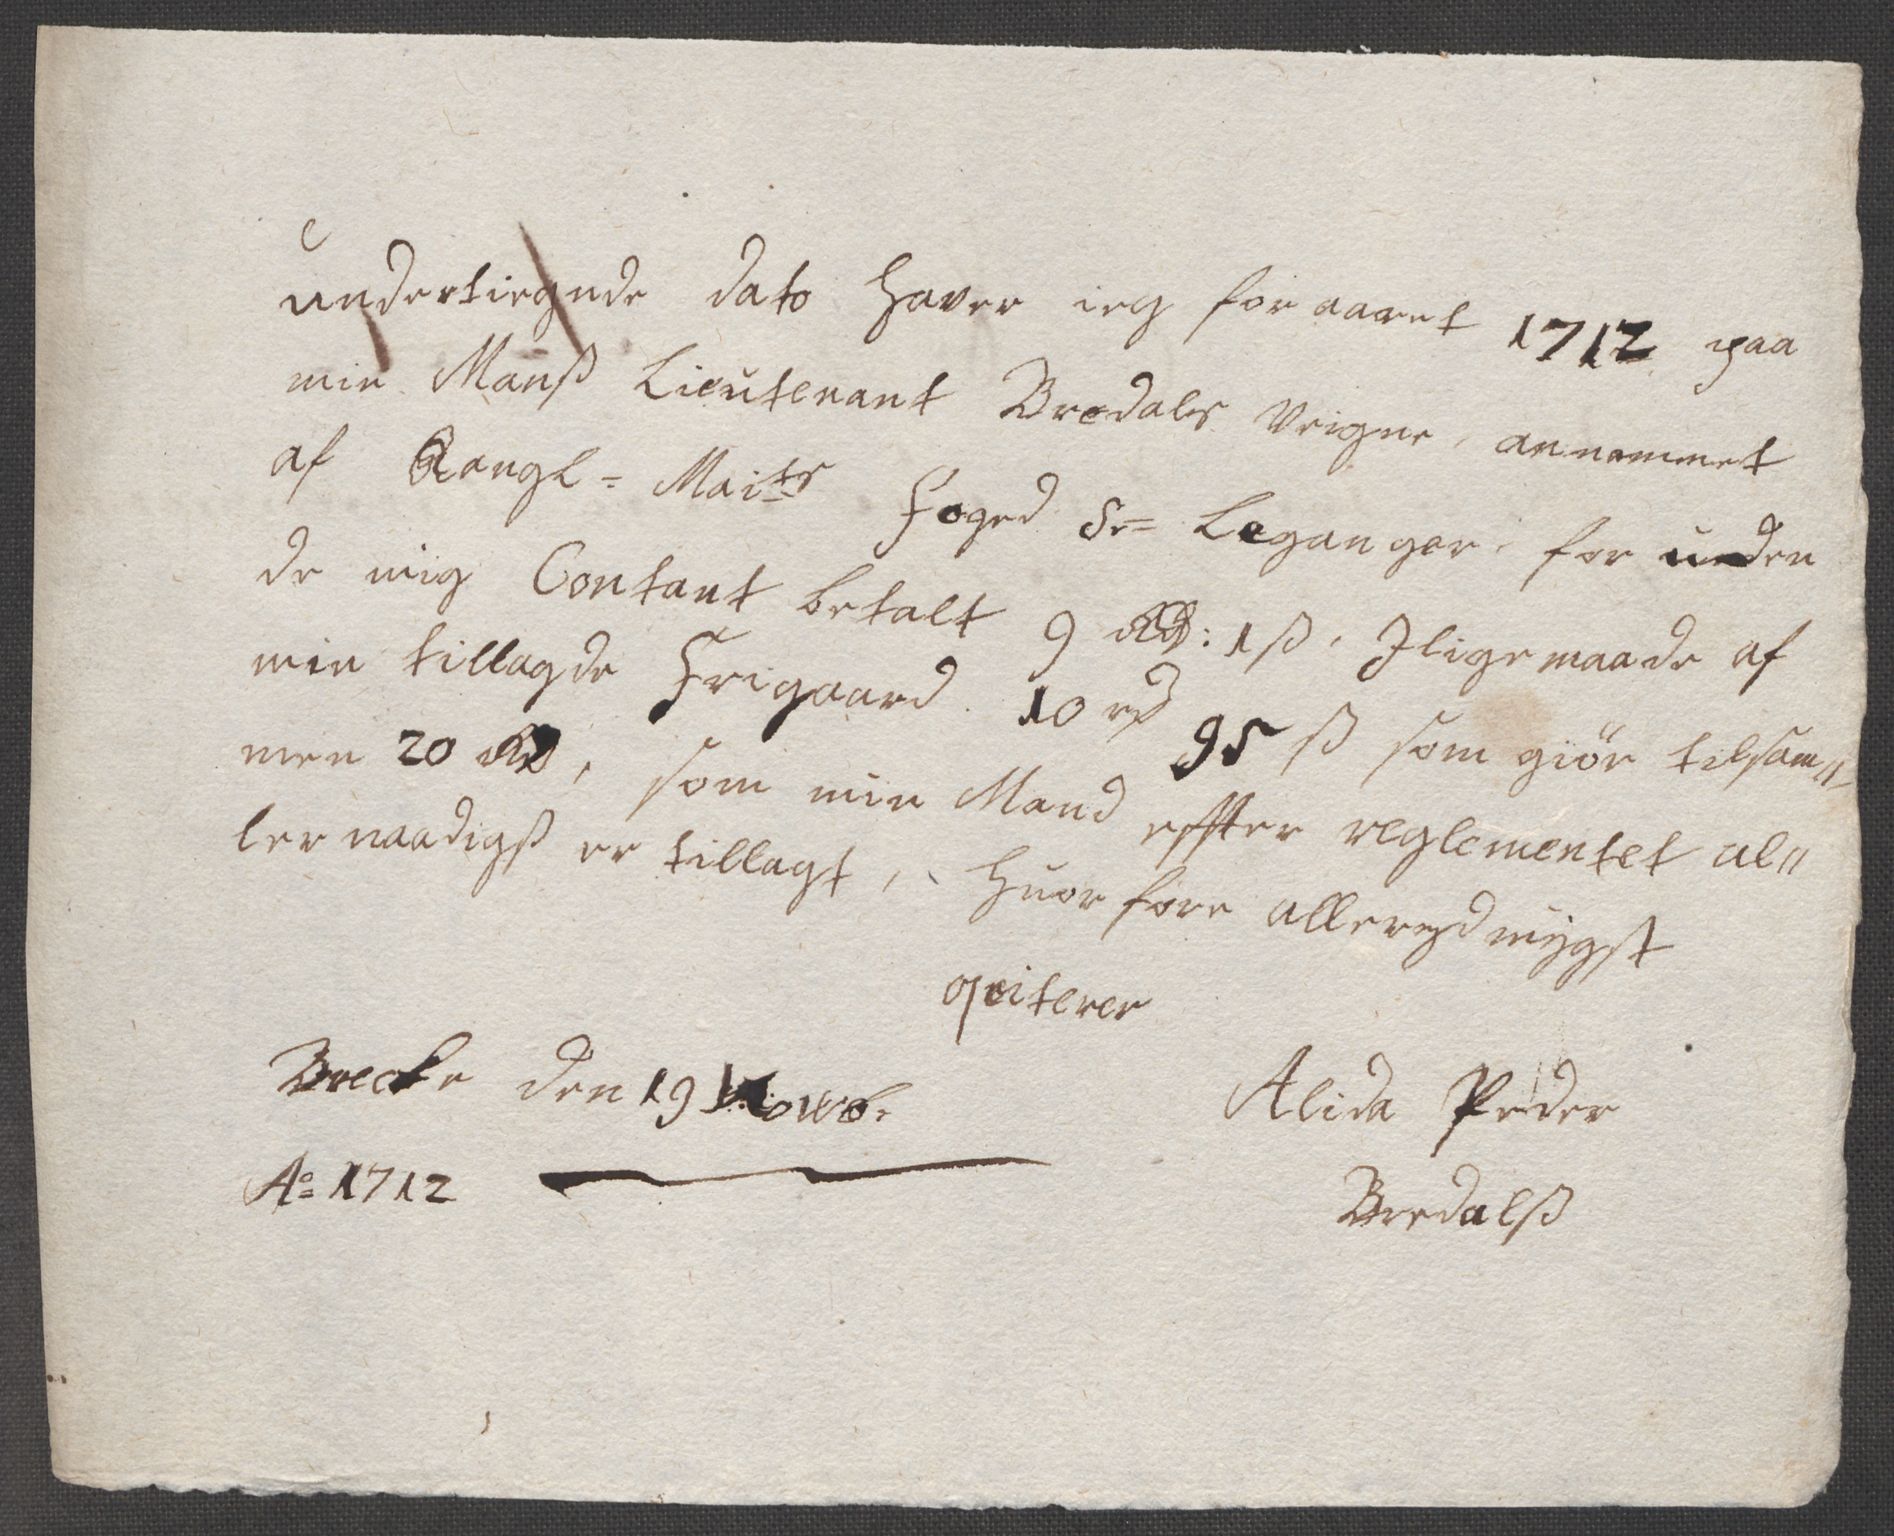 undertiegnde dato haver ieg for aaret 1712 paa
min Manß Lieutenant Bredals Veigne, annammet
af Kongl= Maits Foged Sr= Leganger. for unden
de mig Contant betalt 9 Rd: 1 ß. Jligemaade af
min tillagde Frigaard 10 rd 95 ß som giör tilsam„
men 20 Rd, som min Mand effter reglementet al„
ler naadigß er tillagt, huor fore allerydmygst
qviterer
Brecke den 19 Novb.
Ao= 1712
Alida Peder
Bredalß